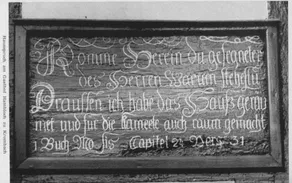 Komme Herein du gesegneter
des Herren Warum stehstu
Draussen ich habe das Hauss gerau
met und für die Kameele auch raum gemacht
1 Buch Mo sis Capitel 24 Vers 31